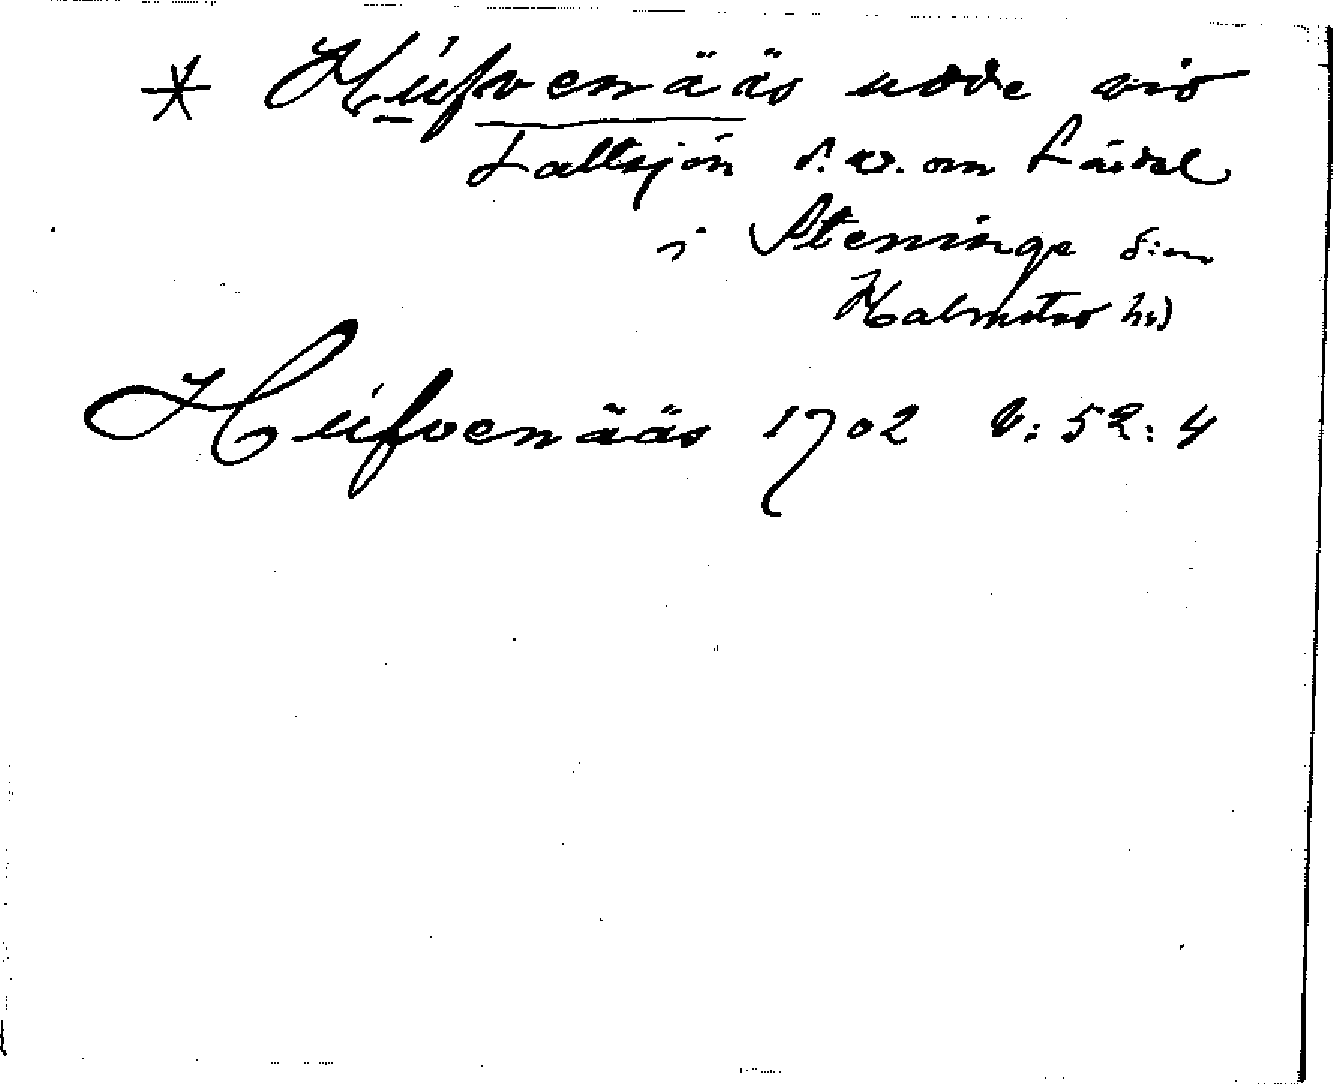 * Hufvenääs udde vid
Saltsjön S.V. om Lårdal
i Steninge s:n
Halmstad hd
Hufvenääs 1702 b: 52: 4